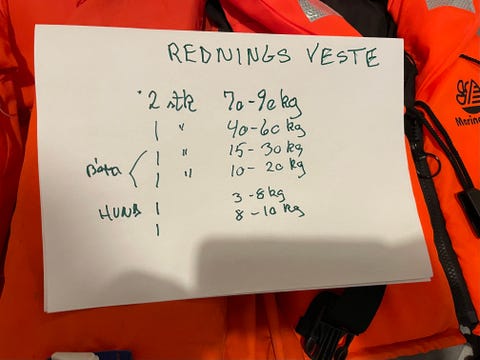 REDNINGS VESTE
2 stk 70-90 kg
1 " 40-60 kg
1 " 15-30 kg
1 " 10-20 kg
HUND 1 3-8 kg
1 8-10 kg
Marine